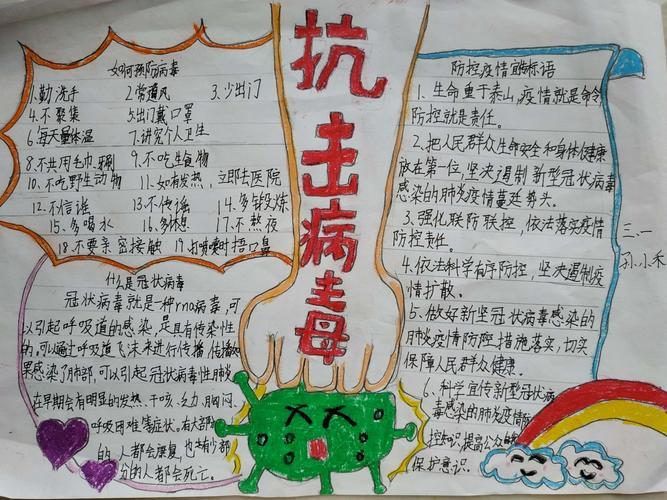 抗击病毒
如何预防病毒
1.勤洗手 2.常通风 3.少出门
4.不聚集 5.出门戴口罩
6.每天量体温 7.讲究个人卫生
8.不共用毛巾、牙刷 9.不吃生食物
10.不吃野生动物 11.如有发热,立即去医院
12.不信谣 13.不传谣 14.多锻炼
15.多喝水 16.多休息 17.不熬夜
18.不要亲密接触 19.打喷嚏时捂口鼻
什么是冠状病毒
冠状病毒就是一种rna病毒,可
以引起呼吸道的感染,是具有传染性
的,可以通过呼吸道飞沫来进行传播,
果感染了肺部,可以引起冠状病毒性肺炎
在早期会有明显的发热、干咳、乏力、胸闷、
呼吸困难等症状。有大部分
的人都会康复,也有少部
分的人都会死亡。
防控疫情宣传标语
1、生命重于泰山,疫情就是命令,
防控就是责任。
2、把人民群众生命安全和身体健康
放在第一位,坚决遏制新型冠状病毒
感染的肺炎疫情蔓延势头。
3、强化联防联控,依法落实疫情
防控责任。
4、依法科学有序防控,坚决遏制疫
情扩散。
5、做好新型冠状病毒感染的
肺炎疫情防控措施落实,切实
保障人民群众健康。
6、科学宣传新型冠状病
毒感染的肺炎疫情防
控知识,提高公众
保护意识。
三、一
孙小禾